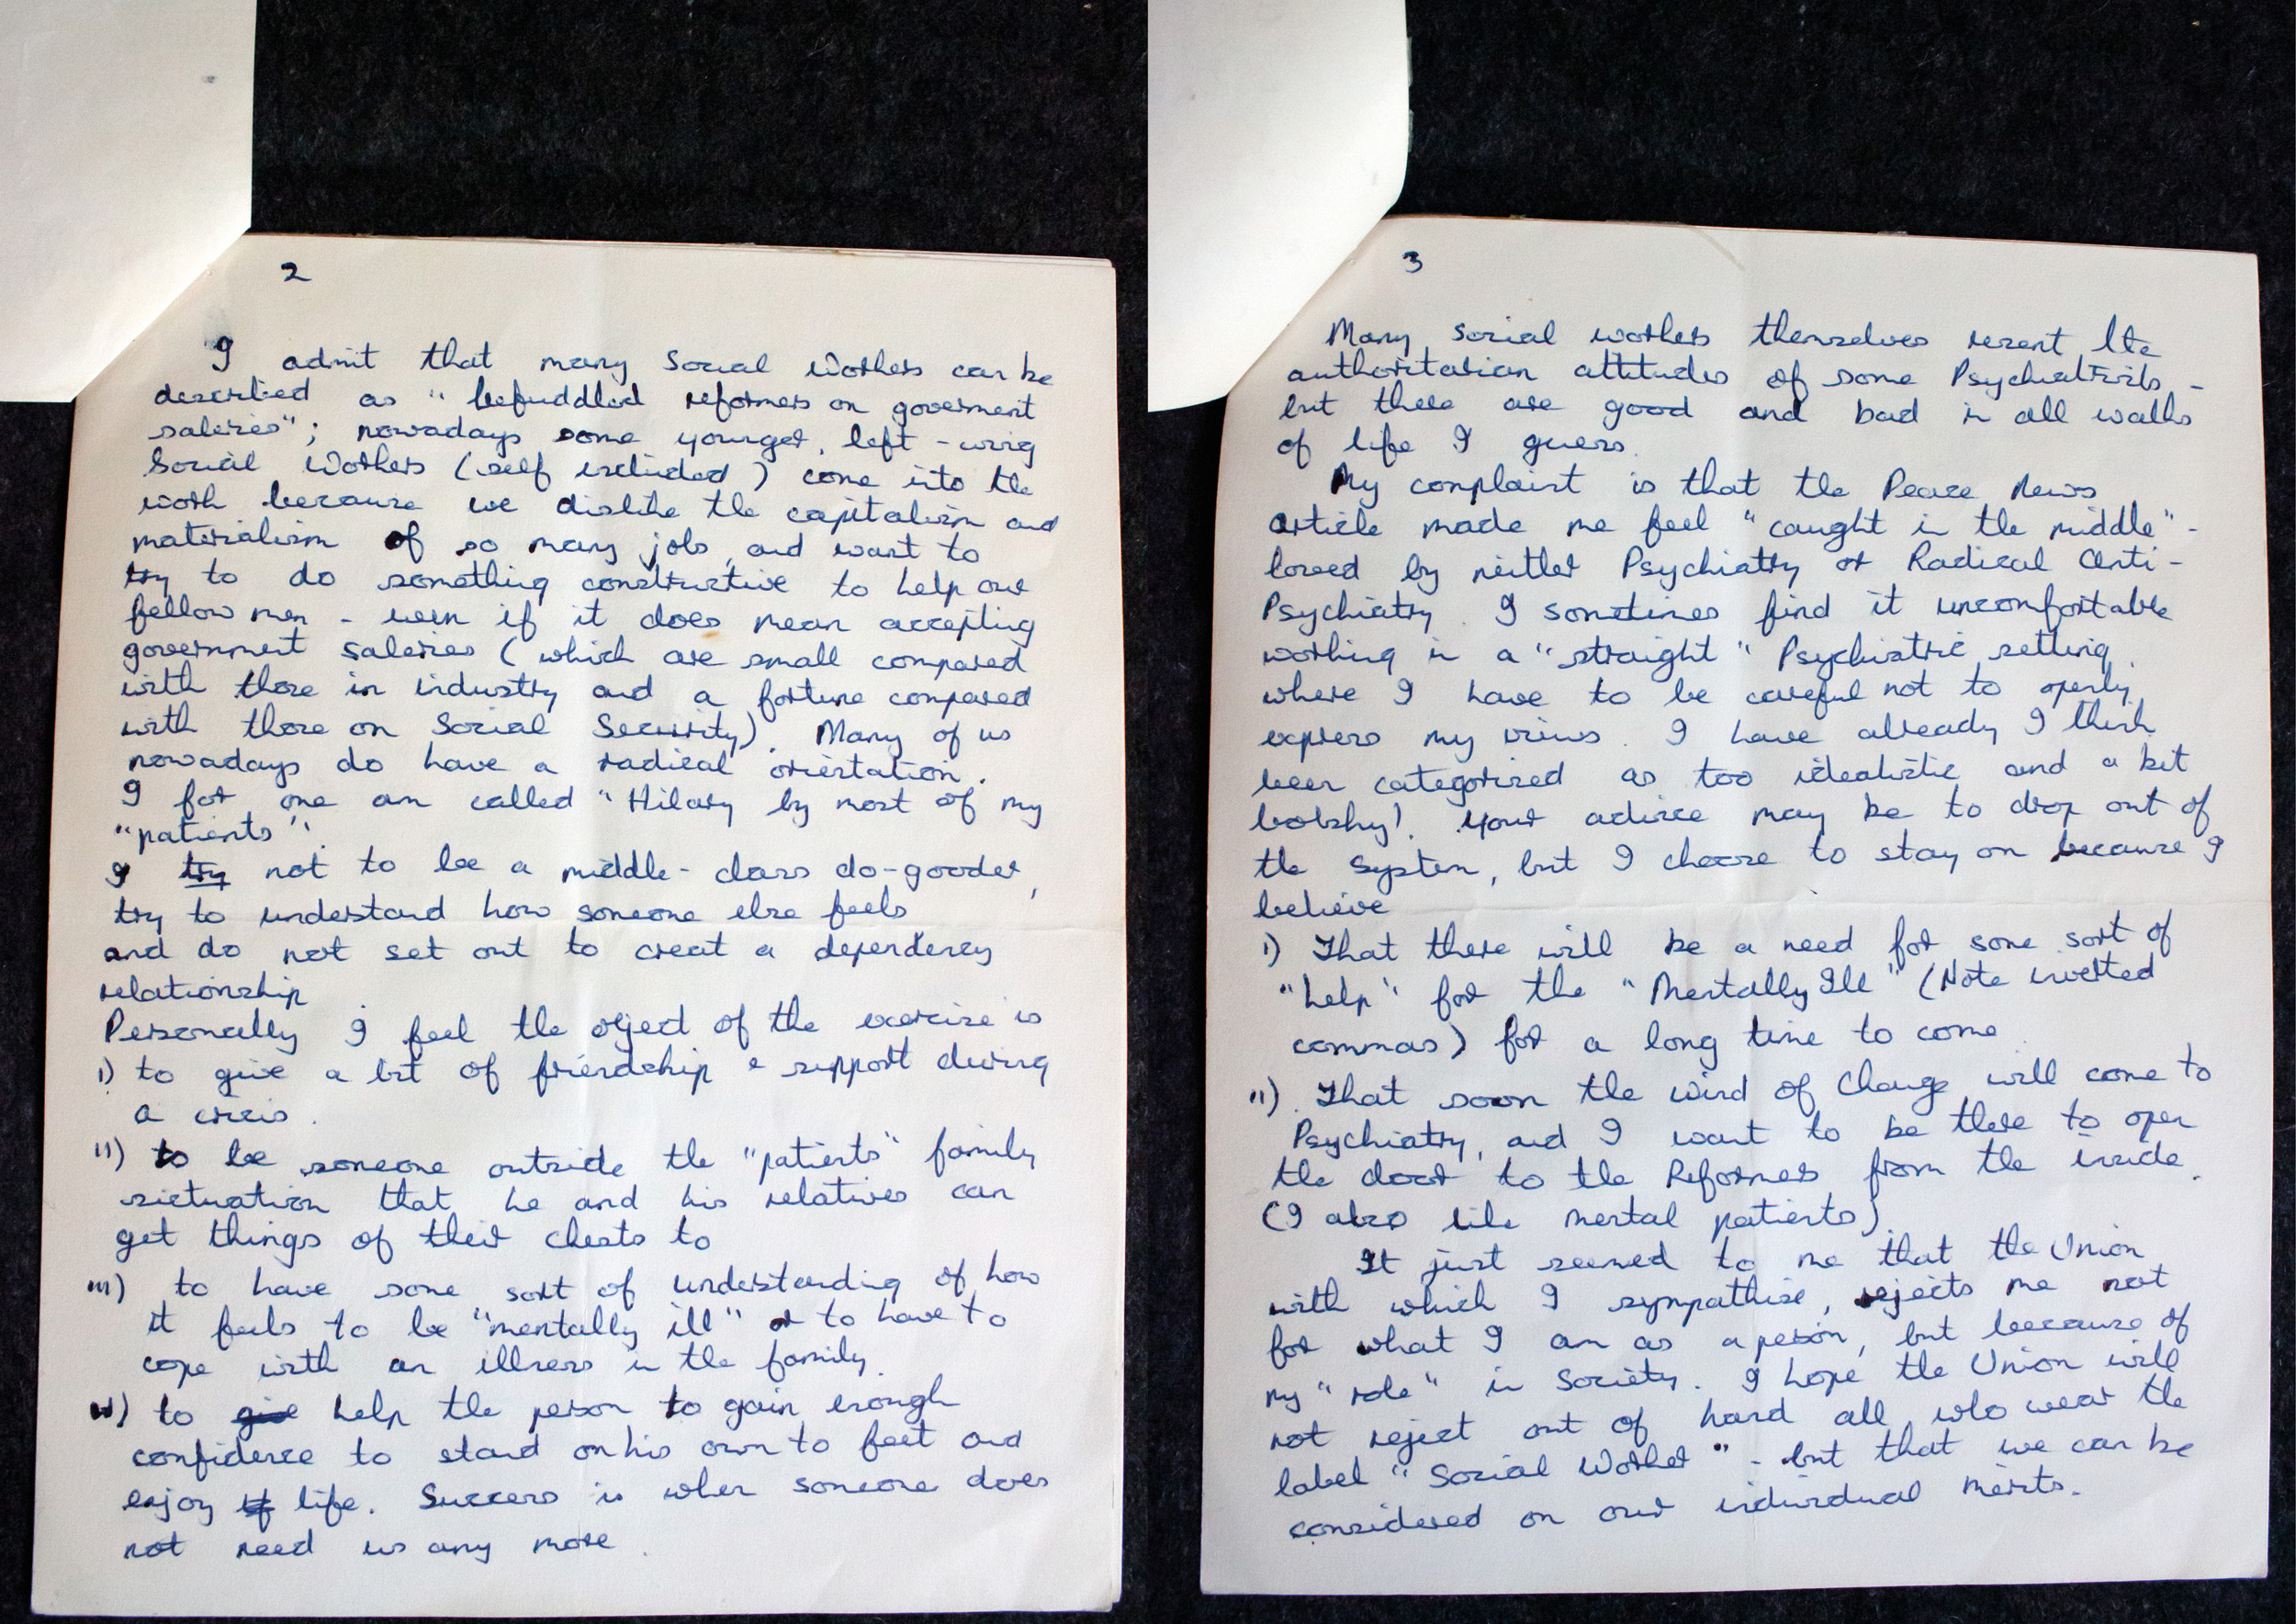 2
I admit that many Social Workers can be
described as "befuddled reformers on goverment
salaries"; nowadays some younger, left-wing
Social Workers (self included) come into the
work because we dislike the capitalism and
materialism of so many jobs, and want to
try to do something constructive to help our
fellow men - even if it does mean accepting
government salaries (which are small compared
with those in industry and a fortune compared
with those on Social Security). Many of us
nowadays do have a radical orientation.
I for one am called "Hilary by most of my
"patients".
I try not to be a middle-class do-gooder,
try to understand how someone else feels
and do not set out to creat a dependency
relationship
Personally I feel the object of the exercise is
i) to give a bit of friendship & support during
a crisis.
ii) to be someone outside the "patients" family
sictuation that he and his relatives can
get things of their chests to
iii) to have some sort of understanding of how
it feels to be "mentally ill" or to have to
cope with an illness in the family.
iv) to give help the person to gain enough
confidence to stand on his own to feet and
enjoy if life. Success is when someone does
not need us any more.
3
Many social workers themselves resent the
authoritarian attitudes of some Psychiatrists -
but there are good and bad in all walks
of life I guess.
My complaint is that the Peace News
article made me feel "caught in the middle" -
loved by neither Psychiatry or Radical Anti-
Psychiatry. I sometimes find it uncomfortable
working in a "straight" Psychiatric setting
where I have to be careful not to openly
express my views. I have already I think
been categorized as too idealistic and a bit
bolshy! Your advice may be to drop out of
the system, but I choose to stay on because I
believe
i) That there will be a need for some sort of
"help" for the "Mentally Ill" (Note inverted
commas) for a long time to come.
ii). That soon the Wind of Change will come to
Psychiatry, and I want to be there to open
the door to the Reformers from the inside.
(I also like mental patients).
It just seemed to me that the Union
with which I sympathise, rejects me not
for what I am as a person, but because of
my "role" in Society. I hope the Union will
not reject out of hand all who wear the
label "Social Worker" - but that we can be
considered on our individual merits.